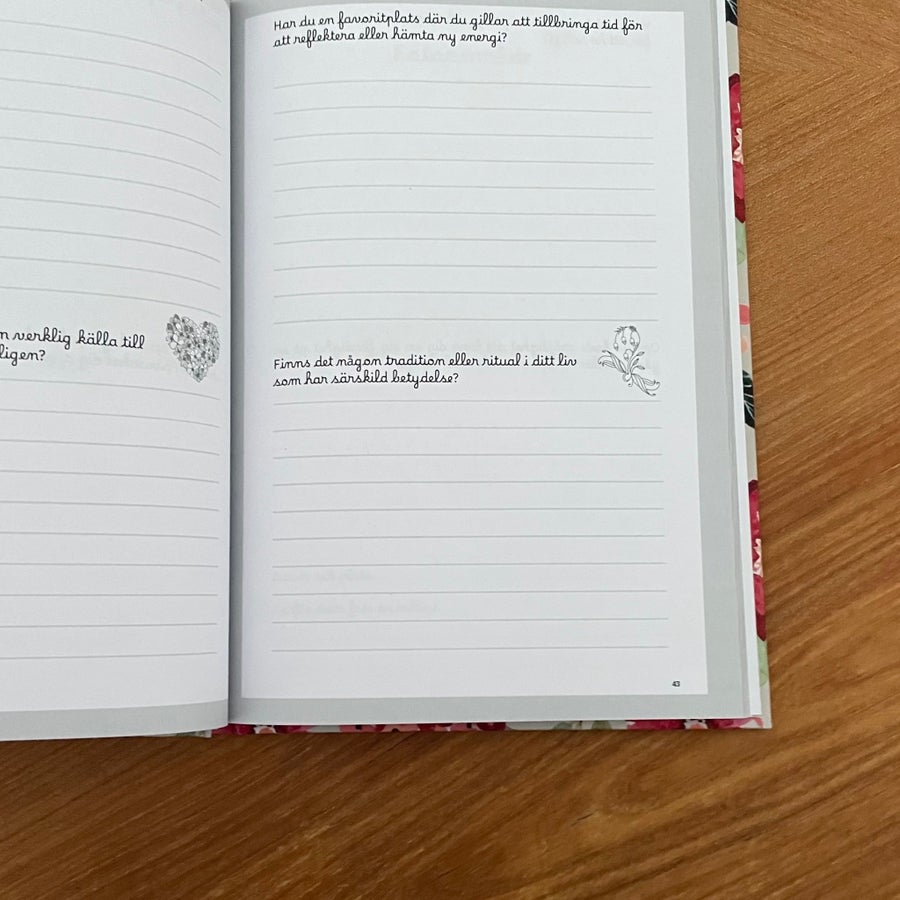 n verklig källa till
ligen?
Har du en favoritplats där du gillar att tillbringa tid för
att reflektera eller hämta ny energi?
Finns det någon tradition eller ritual i ditt liv
som har särskild betydelse?
43